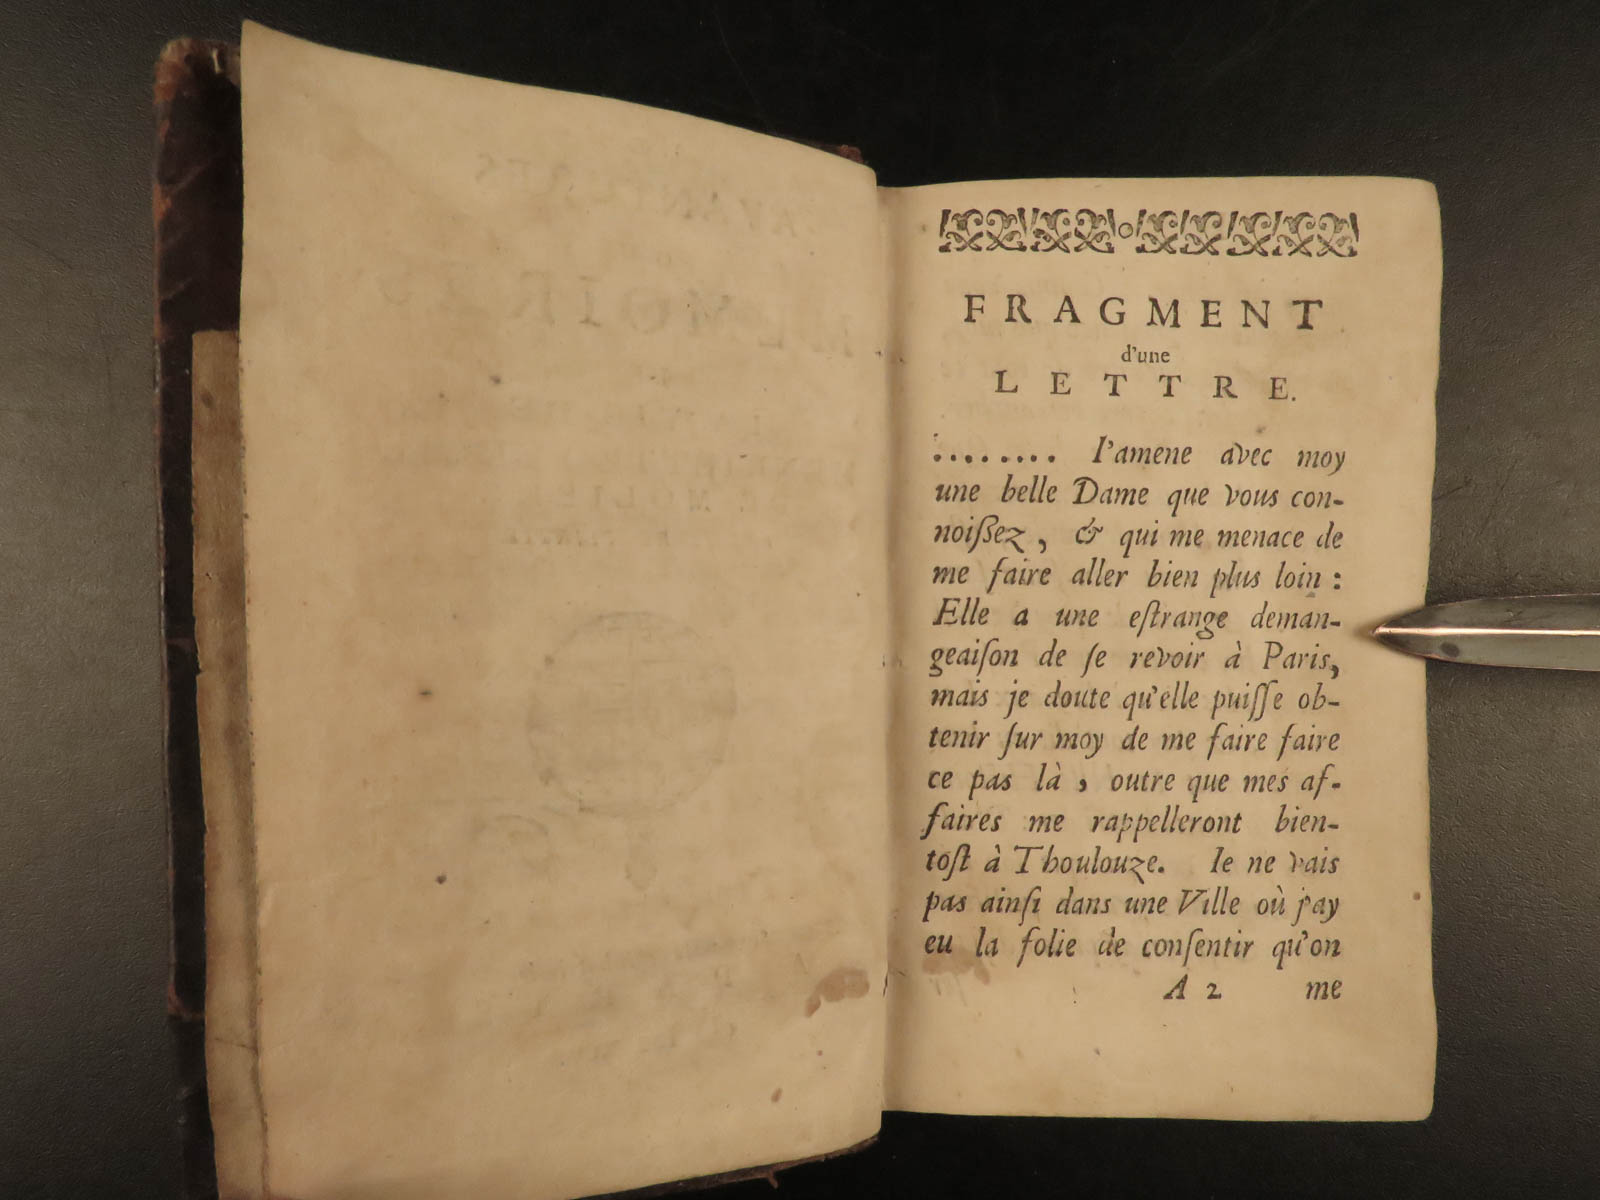 FRAGMENT
d'une
LETTRE.
........ I'amene avec moy
une belle Dame que vous con-
noißez, & qui me menace de
me faire aller bien plus loin :
Elle a une eſtrange deman-
geaiſon de ſe revoir à Paris,
mais je doute qu'elle puiſſe ob-
tenir ſur moy de me faire faire
ce pas là, outre que mes af-
faires me rappelleront bien-
toſt à Thoulouze. Ie ne vais
pas ainſi dans une Ville où j'ay
eu la folie de conſentir qu'on
A 2 me